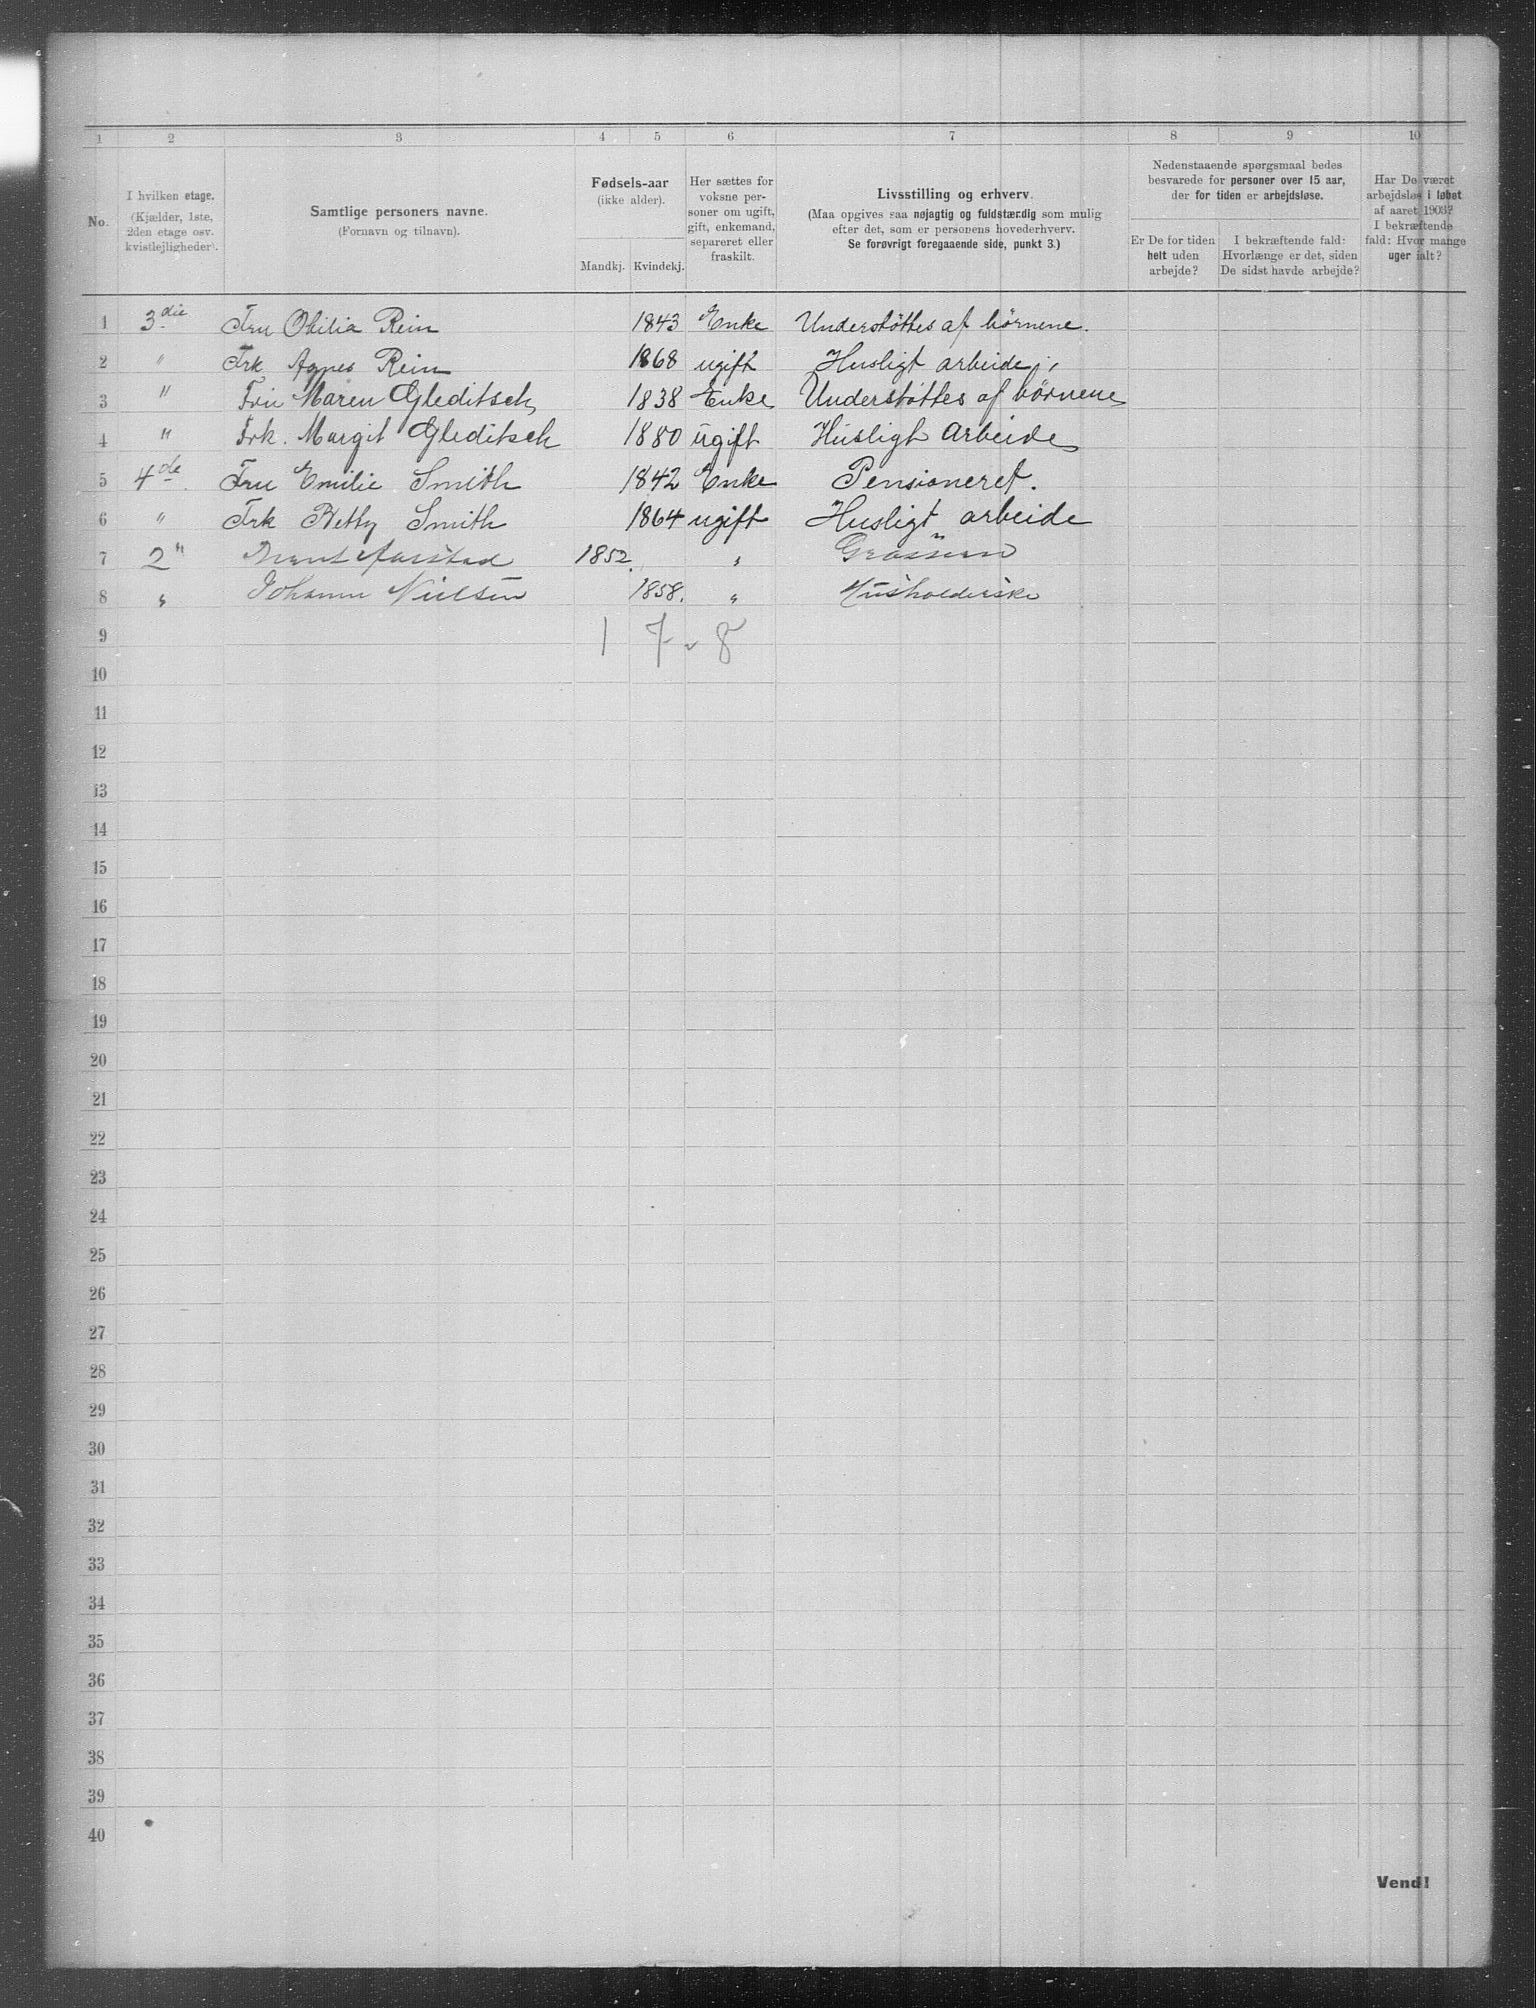 1 2 3 4 5 6 7 8 9 10
No.
I hvilken etage.
(Kjælder, 1ste,
2den etage osv.
kvistlejligheder).
Samtlige personers navne.
(Fornavn og tilnavn).
Fødsels-aar
(ikke alder).
Mandkj. Kvindekj.
Her sættes for
voksne per-
soner om ugift,
gift, enkemand,
separeret eller
fraskilt.
Livsstilling og erhverv.
(Maa opgives saa nøjagtig og fuldstændig som mulig
efter det, som er personens hovederhverv.
Se forøvrigt foregaaende side, punkt 3.)
Nedenstaaende spørgsmaal bedes
besvarede for personer over 15 aar,
der for tiden er arbejdsløse.
Er De for tiden
helt uden
arbejde?
I bekræftende fald:
Hvorlænge er det, siden
De sidst havde arbejde?
Har De været
arbejdsløs i løbet
af aaret 1903?
I bekræftende
fald: Hvor mange
uger ialt?
1 3die Fru Othilia Rein 1843 Enke Understøttes af børnene.
2 " Frk Agnes Rein 1868 ugift Husligt arbeide
3 " Fru Maren Gleditsch 1838 Enke Understøttes af børnene
4 " Frk. Margit Gleditsch 1880 ugift Husligt Arbeide
5 4de Fru Emilie Smith 1842 Enke Pensioneret.
6 " Frk Betty Smith 1864 ugift Husligt arbeide
7 2" Aarstad 1852. "
8 " Johanne Nielsen 1858. " Husholderske
9 1 7 - 8
10
11
12
13
14
15
16
17
18
19
20
21
22
23
24
25
26
27
28
29
30
31
32
33
34
35
36
37
38
39
40
Vend!